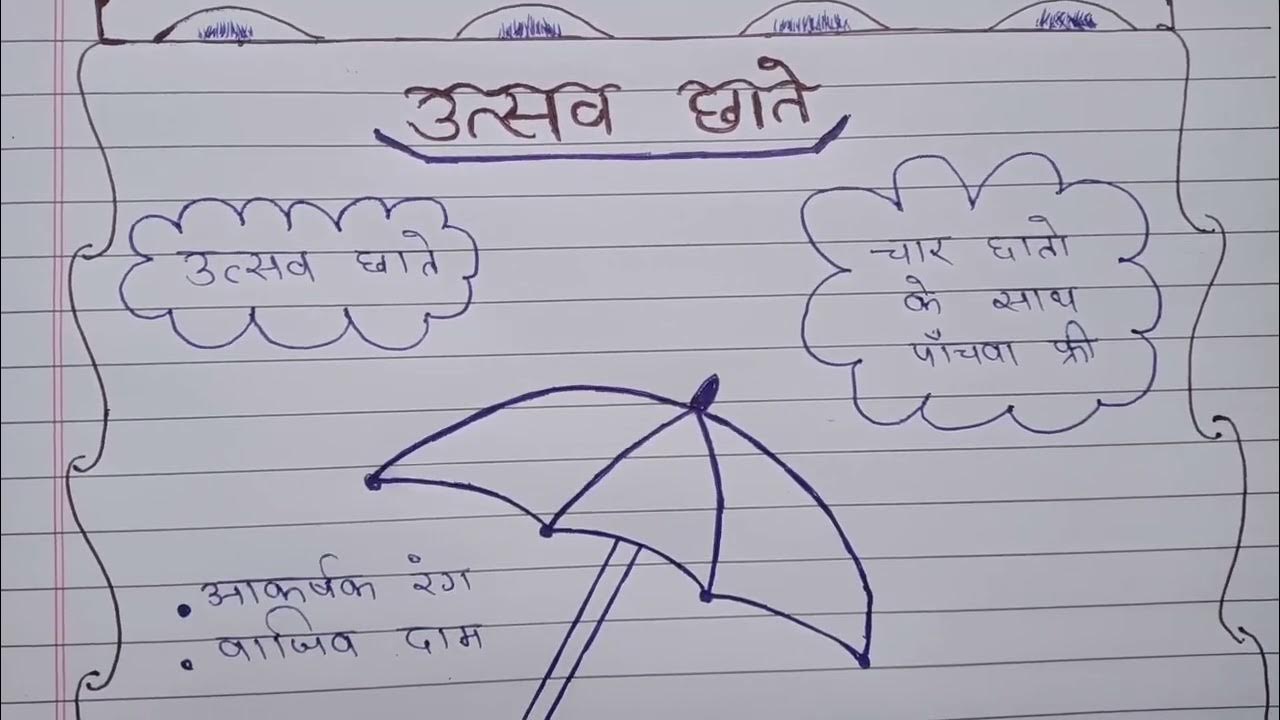 उत्सव छाते
उत्सव छाते
चार छातो
के साथ
पाँचवा फ्री
• आकर्षक रंग
• वाजिव दाम